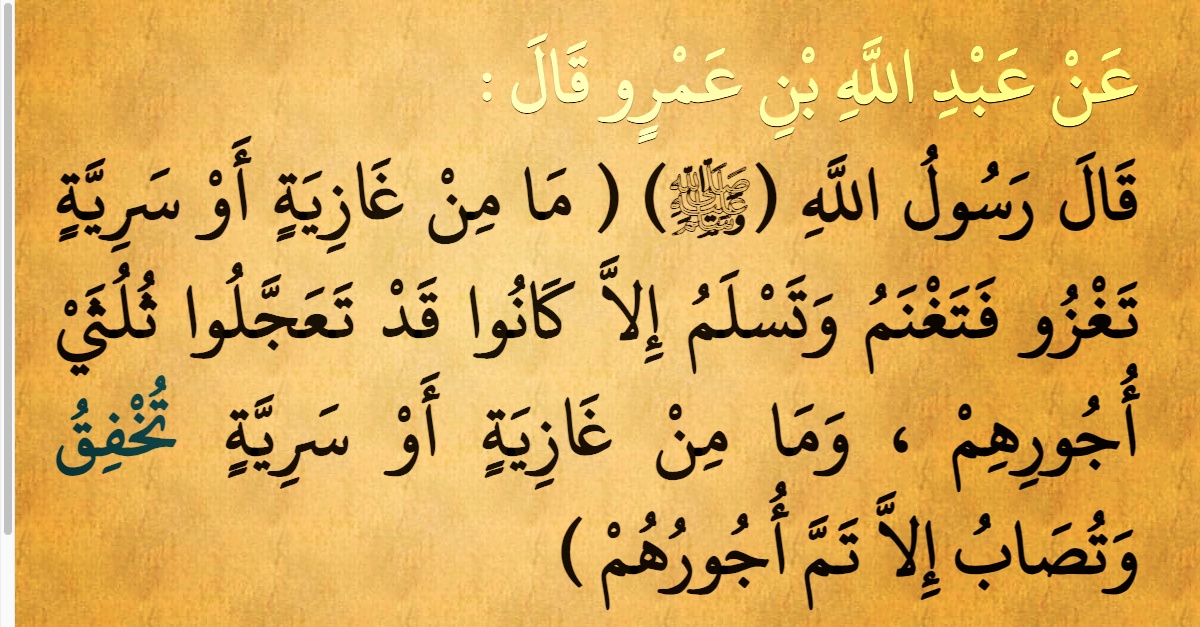 عَنْ عَبْدِ اللَّهِ بْنِ عَمْرٍو قَالَ :
قَالَ رَسُولُ اللَّهِ (ﷺ) ( مَا مِنْ غَازِيَةٍ أَوْ سَرِيَّةٍ
تَغْزُو فَتَغْنَمُ وَتَسْلَمُ إِلاَّ كَانُوا قَدْ تَعَجَّلُوا ثُلُثَيْ
أُجُورِهِمْ ، وَمَا مِنْ غَازِيَةٍ أَوْ سَرِيَّةٍ تُخْفِقُ
وَتُصَابُ إِلاَّ تَمَّ أُجُورُهُمْ )